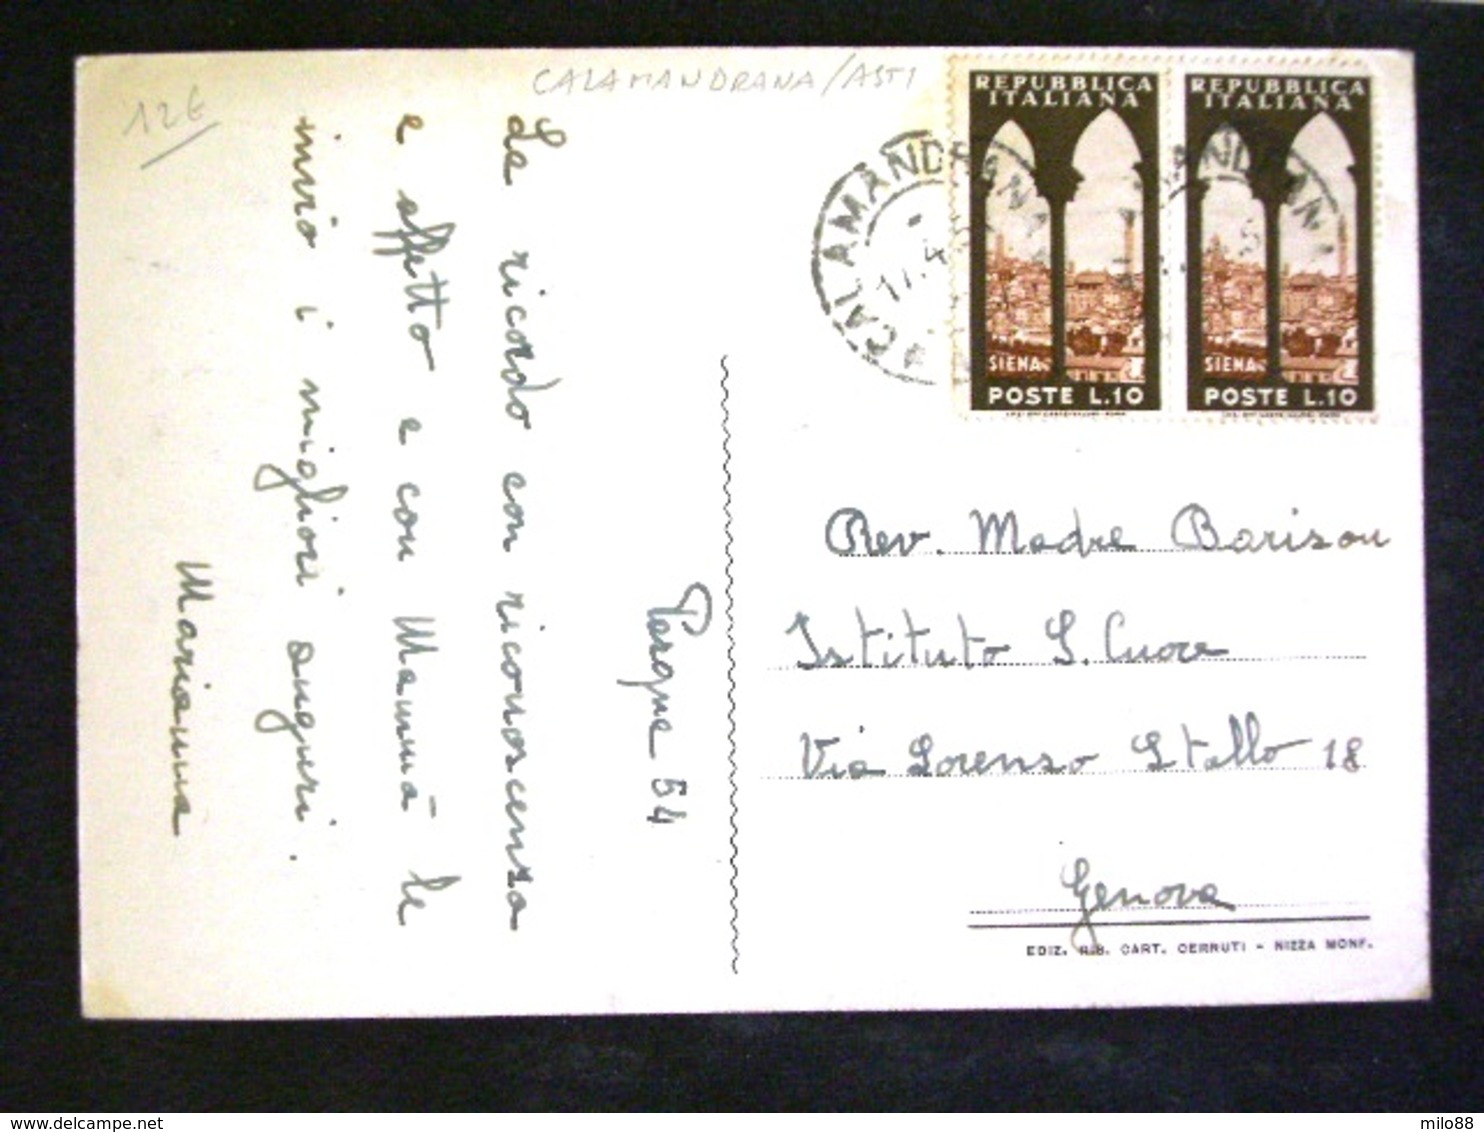 CALAMANDRANA/ASTI
12€
REPUBBLICA
ITALIANA
SIENA
POSTE L.10
REPUBBLICA
ITALIANA
SIENA
POSTE L.10
CALAMANDRANA
17.4
Pasqua 54
La ricordo con riconoscenza
e affetto e con Mammà le
invio i migliori auguri.
Marianna
Rev. Madre Barison
Istituto S. Cuore
Via Lorenzo Stallo 18
Genova
EDIZ. RIS. CART. CERRUTI - NIZZA MONF.
milo88